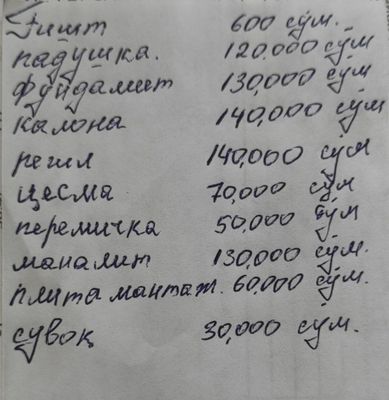 Ғишт 600 сўм.
падушка. 120.000 сўм
фундамит 130,000 сўм
калона 140,000 сўм
регил 140,000 сўм
цесма 70,000 сўм
перемичка 50,000 сўм
маналит 130,000 сўм.
плита мантаж. 60,000 сўм.
сувоқ 30,000 сўм.